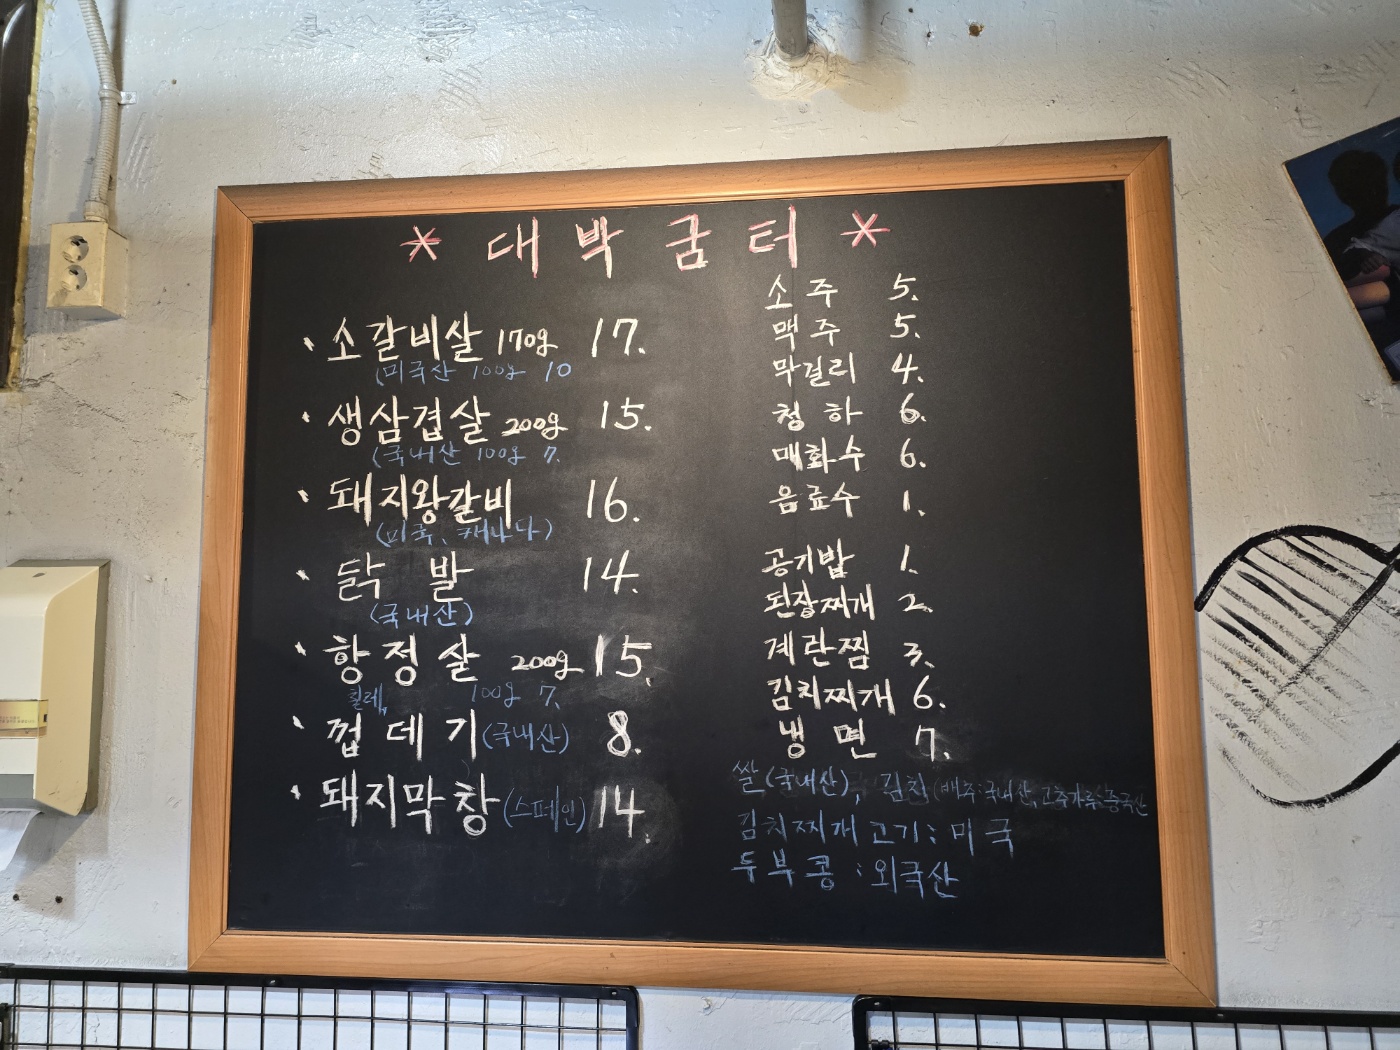 * 대 박 굼 터 *
소갈비살 170g 17.
(미국산 100g 10
생삼겹살 200g 15.
(국내산 100g 7.
돼지왕갈비 16.
(미국, 캐나다)
닭 발 14.
(국내산)
항정살 200g 15.
칠레, 100g 7.
껍데기 (국내산) 8.
돼지막창 (스페인) 14.
소주 5.
맥주 5.
막걸리 4.
청하 6.
매화수 6.
음료수 1.
공기밥 1.
된장찌개 2.
계란찜 3.
김치찌개 6.
냉면 7.
쌀(국내산), 김치(배추:국내산,고추가루:중국산
김치찌개고기: 미국
두부콩 : 외국산